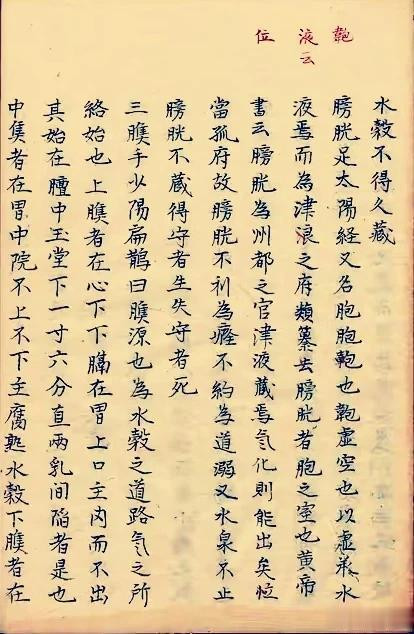 鞄
液云
位
水穀不得久藏
膀胱足太陽経又名胞胞鞄也鞄虚空也以虚承水
液焉而為津浪之府類纂去膀胱者胞之室也黄帝
書云膀胱為州都之官津液藏焉氣化則能出矣
當孤府故膀胱不利為癃不約為道溺又水泉不止
膀胱不藏得守者生失守者死
三膲手少陽扁鵲曰膲源也為水穀之道路氣之所
絡始也上膲者在心下下膈在胃上口主内而不出
其始在膻中玉堂下一寸六分直兩乳間陷者是也
中焦者在胃中院不上不下主腐熟水穀下膲者在